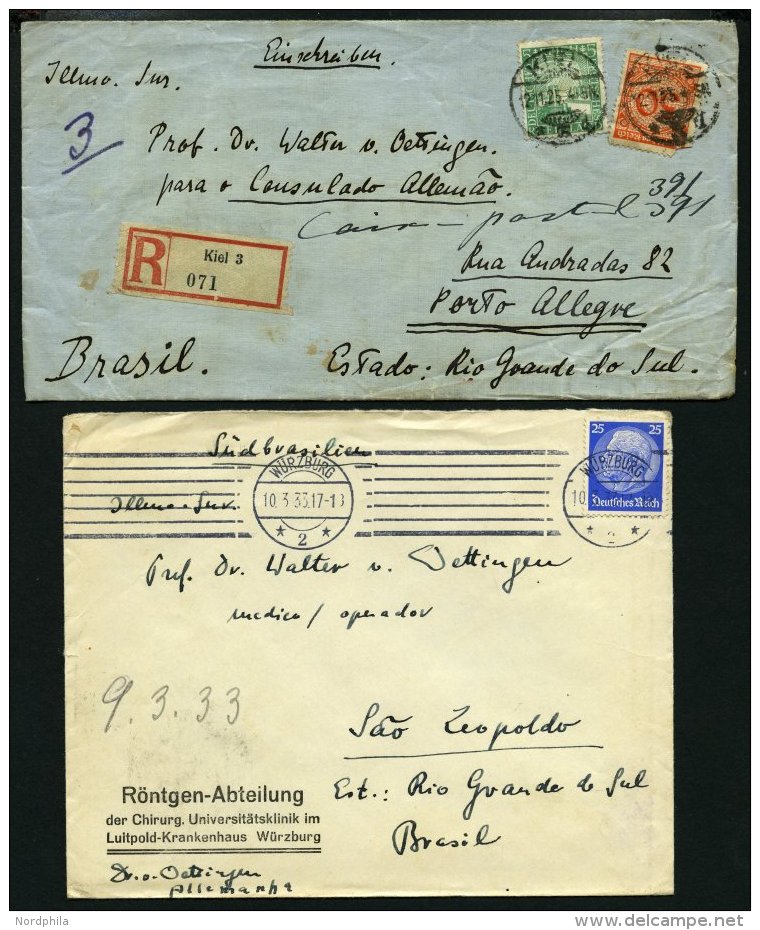 Einschreiben.
Illmo. Snr.
3
Prof. Dr. Walter v. Oettingen.
para o Consulado Allemão.
391
391
R
Kiel 3
071
Rua Andradas 82
Porto Allegre
Brasil. Estado: Rio Grande do Sul.
KIEL
12.11.25.
Südbrasilien
WÜRZBURG
10.3.33.17-18
2
25 25
Deutsches Reich
WÜRZBURG
10
2
Illmo. Snr.
Prof. Dr. Walter v. Oettingen
medico / operador
9.3.33
São Leopoldo
Est.: Rio Grande do Sul
Brasil
Röntgen-Abteilung
der Chirurg. Universitätsklinik im
Luitpold-Krankenhaus Würzburg
Dr. v. Oettingen
Allemanha
Nordphila
delcampe.net